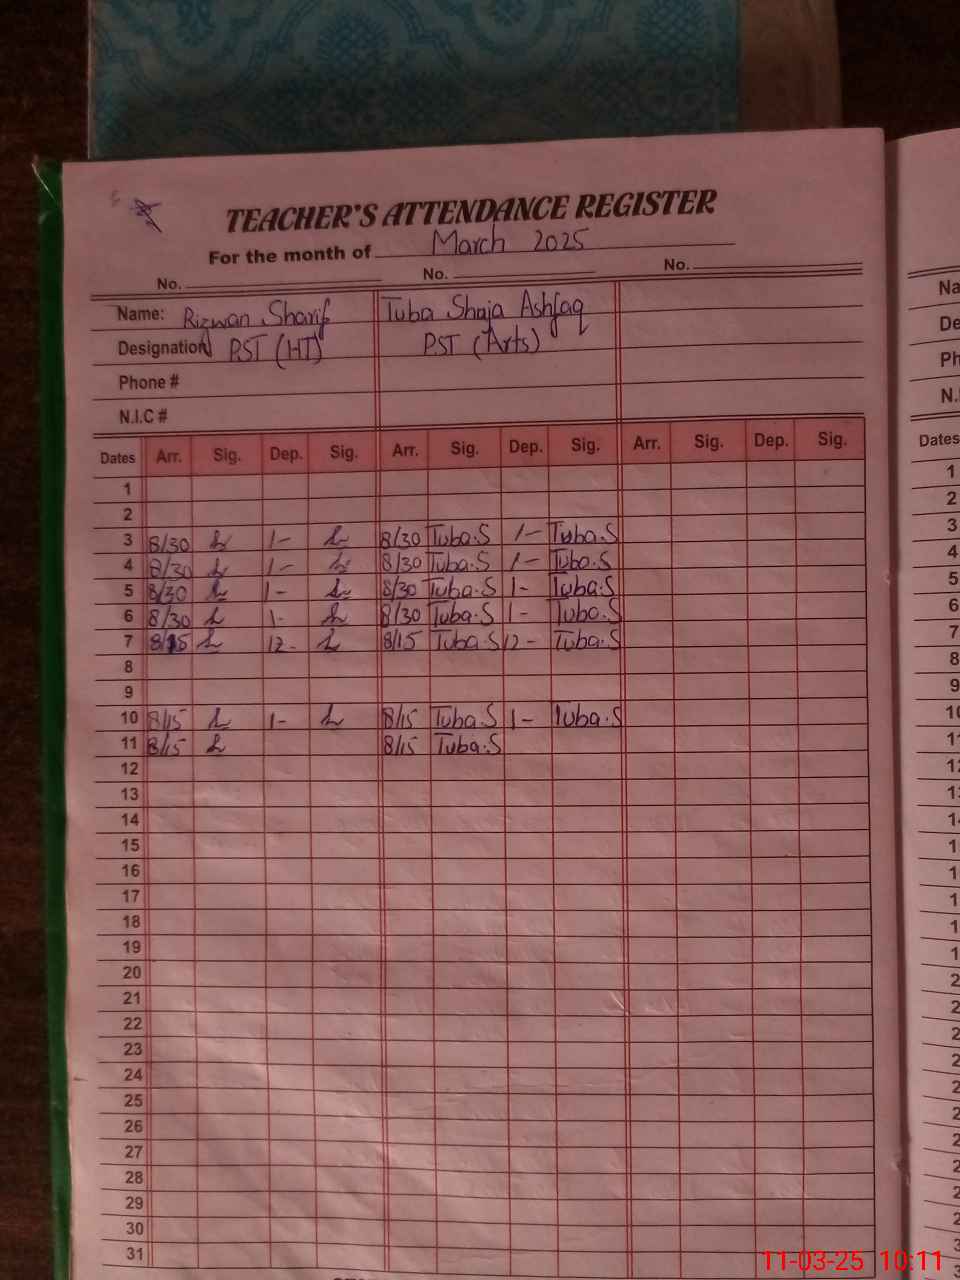 TEACHER'S ATTENDANCE REGISTER
For the month of March 2025
No. No. No.
Name: Rizwan Sharif Tuba Shaja Ashfaq
Designation PST (HT) PST (Arts)
Phone #
N.I.C #
Dates Arr. Sig. Dep. Sig. Arr. Sig. Dep. Sig. Arr. Sig. Dep. Sig.
1
2
3 8/30 1- 8/30 Tuba.S 1- Tuba.S
4 8/30 1- 8/30 Tuba.S 1- Tuba.S
5 8/30 1- 8/30 Tuba.S 1- Tuba.S
6 8/30 1- 8/30 Tuba.S 1- Tuba.S
7 8/15 12- 8/15 Tuba.S 12- Tuba.S
8
9
10 8/15 1- 8/15 Tuba.S 1- Tuba.S
11 8/15 8/15 Tuba.S
12
13
14
15
16
17
18
19
20
21
22
23
24
25
26
27
28
29
30
31
Dates
1
2
3
4
5
6
7
8
9
10
11-03-25 10:11